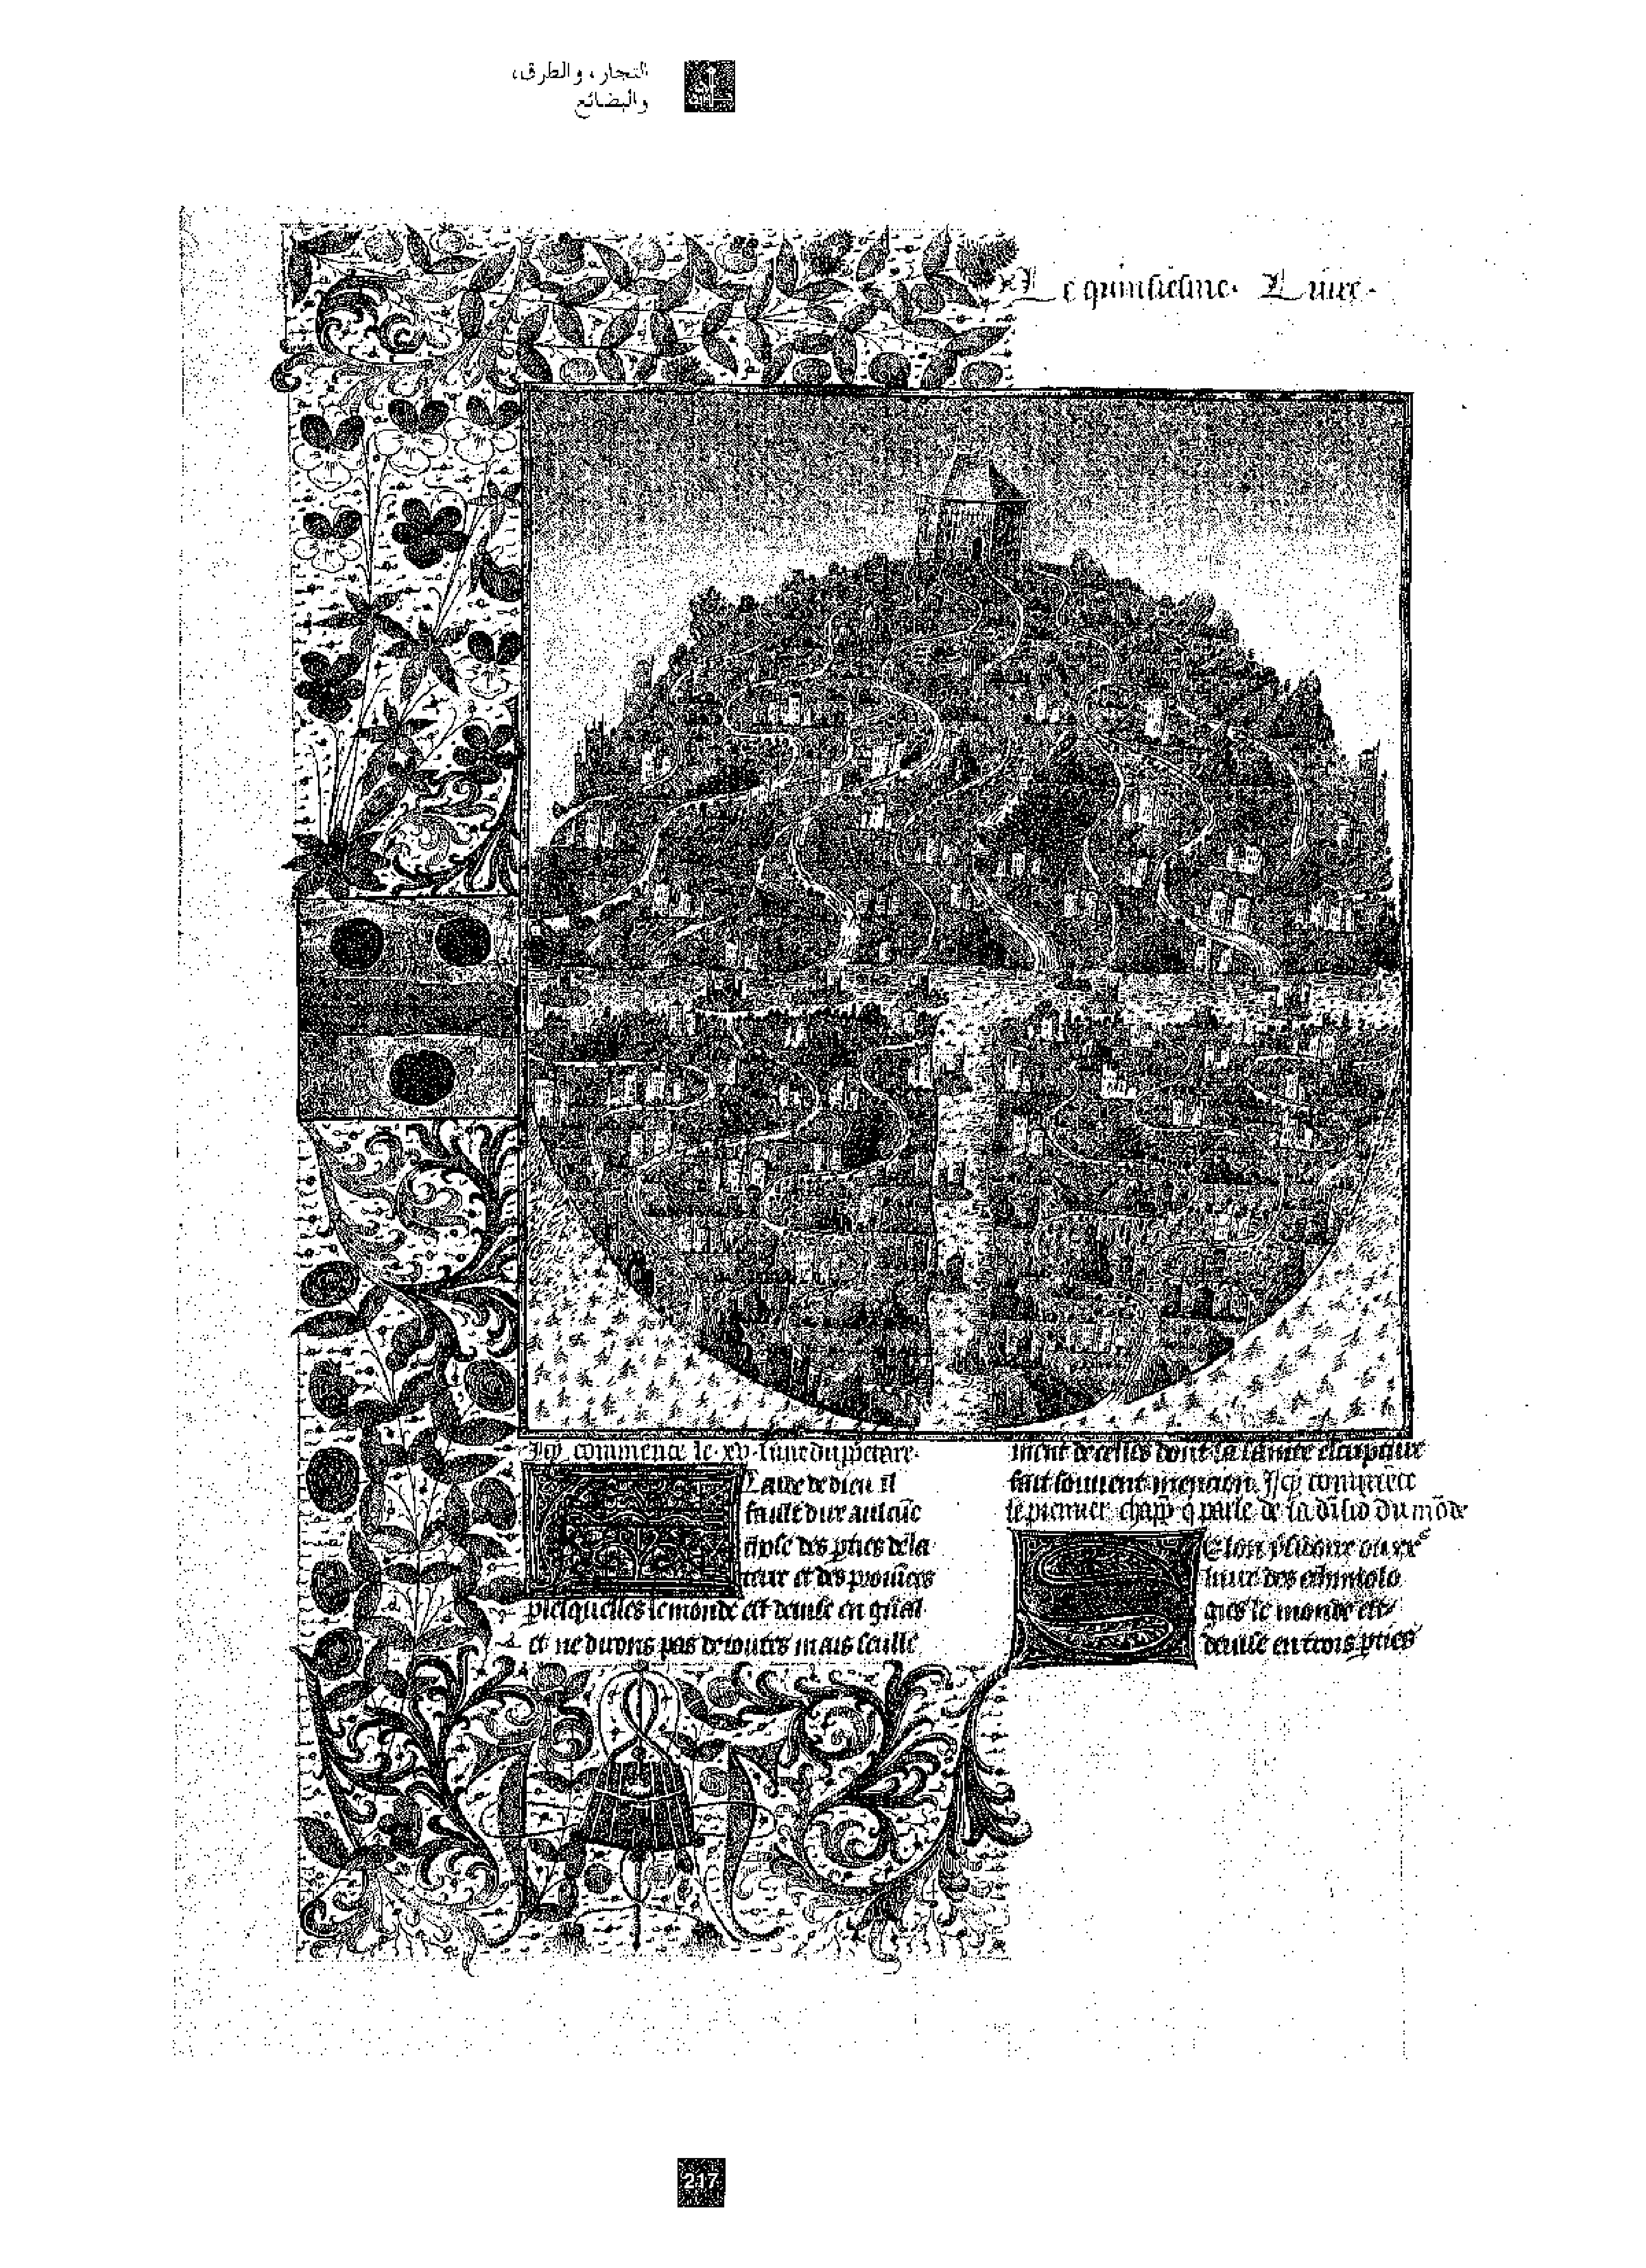 التجار، والطرق،
والبضائع
Le quinsiesme Liure
Icy commence le xv. liure du
Laide de dieu il
fault dire aulcuē
chose des pties de la
terre et des prouīces
le monde est deuise en gñal
et ne dirons pas de toutes mais seulle
ment de celles dont la saincte escripture
fait souuent mencion. Icy commēce
le premier chapp̄e q̄ parle de la diuisiō du mōde
Selon ysidore ou xv
liure des ethimolo
gies le monde est
deuise en trois pties
217